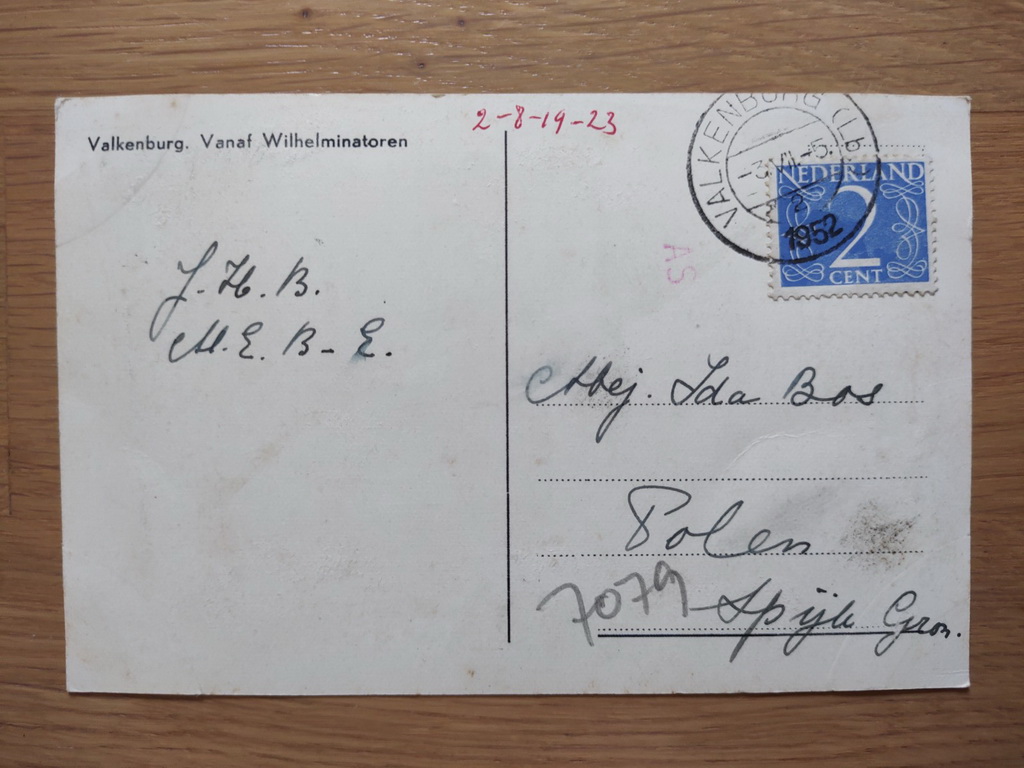 Valkenburg. Vanaf Wilhelminatoren
2-8-19-23
VALKENBURG (Lb
1952
NEDERLAND
2
CENT
AS
J. H. B.
M. E. B - E.
Mej. Ida Bos
Polen
7079
Spijk Gron.